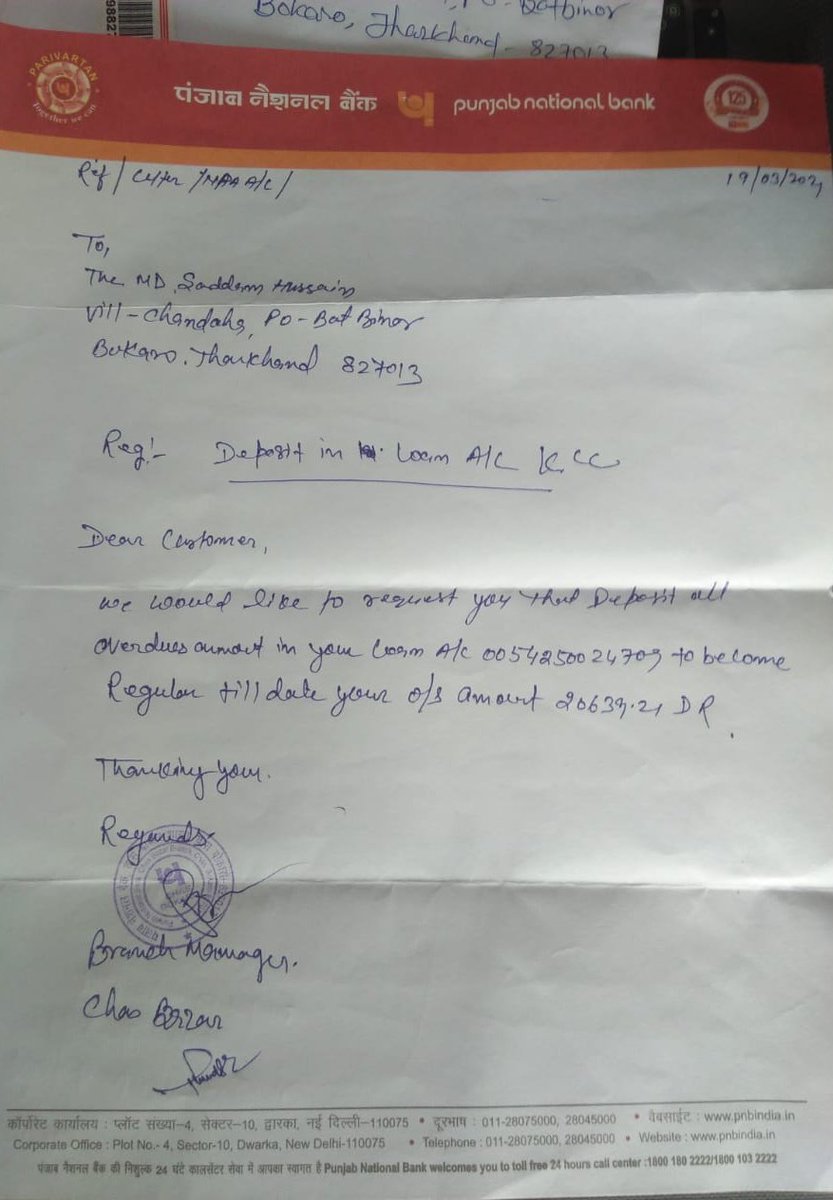 9882
Bokaro, Jharkhand - 827013
PARIVARTAN
Together we can
पंजाब नैशनल बैंक punjab national bank
125
Ref / /NPA A/C/
19/03/2021
To,
The MD. Saddam Hussain
Vill - Chandaha, PO - Bat Binor
Bokaro. Jharkhand 827013
Reg:- Deposit in Loan A/C KCC
Dear Customer,
we would like to request you that Deposit all
overdues amount in your Loan A/c to become
Regular till date your o/s amount 20639.21 DR.
Thanking you.
Regards
Branch Manager.
Chas Bazar
कॉर्पोरेट कार्यालय : प्लॉट संख्या–4, सेक्टर–10, द्वारका, नई दिल्ली–110075 • दूरभाष : 011-28075000, 28045000 • वेबसाईट : www.pnbindia.in
Corporate Office : Plot No.- 4, Sector-10, Dwarka, New Delhi-110075 • Telephone : 011-28075000, 28045000 • Website : www.pnbindia.in
पंजाब नैशनल बैंक की निशुल्क 24 घंटे कालसेंटर सेवा में आपका स्वागत है Punjab National Bank welcomes you to toll free 24 hours call center :1800 180 2222/1800 103 2222